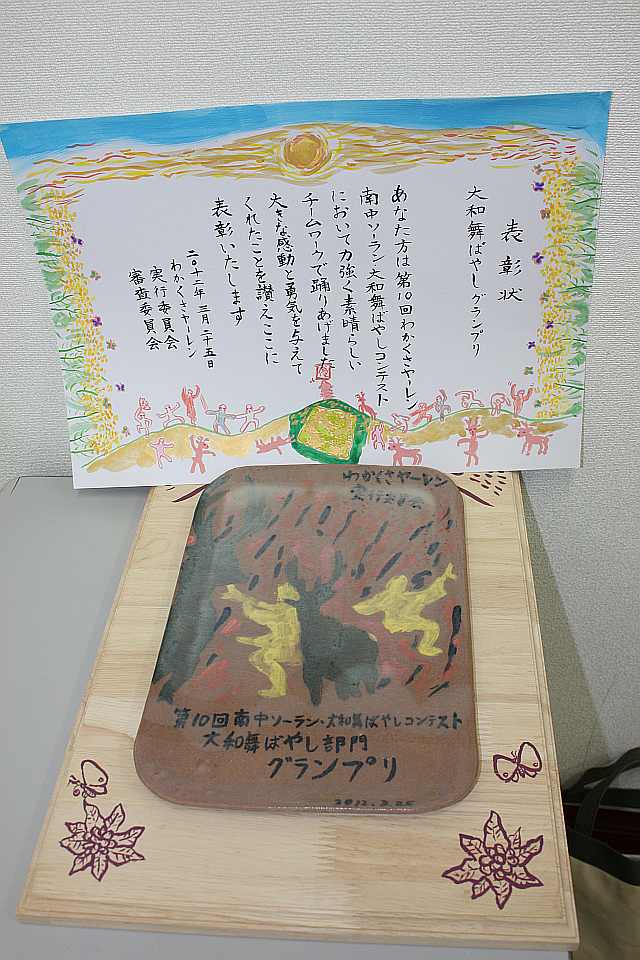 表彰状
大和舞ばやしグランプリ
あなた方は第10回わかくさヤーレン
南中ソーラン大和舞ばやしコンテスト
において力強く素晴らしい
チームワークで踊りあげました
大きな感動と勇気を与えて
くれたことを讃えここに
表彰いたします
二〇十二年 三月二十五日
わかくさヤーレン
実行委員会
審査委員会
わかくさヤーレン
実行委員会
第10回南中ソーラン・大和舞ばやしコンテスト
大和舞ばやし部門
グランプリ
2012.3.25